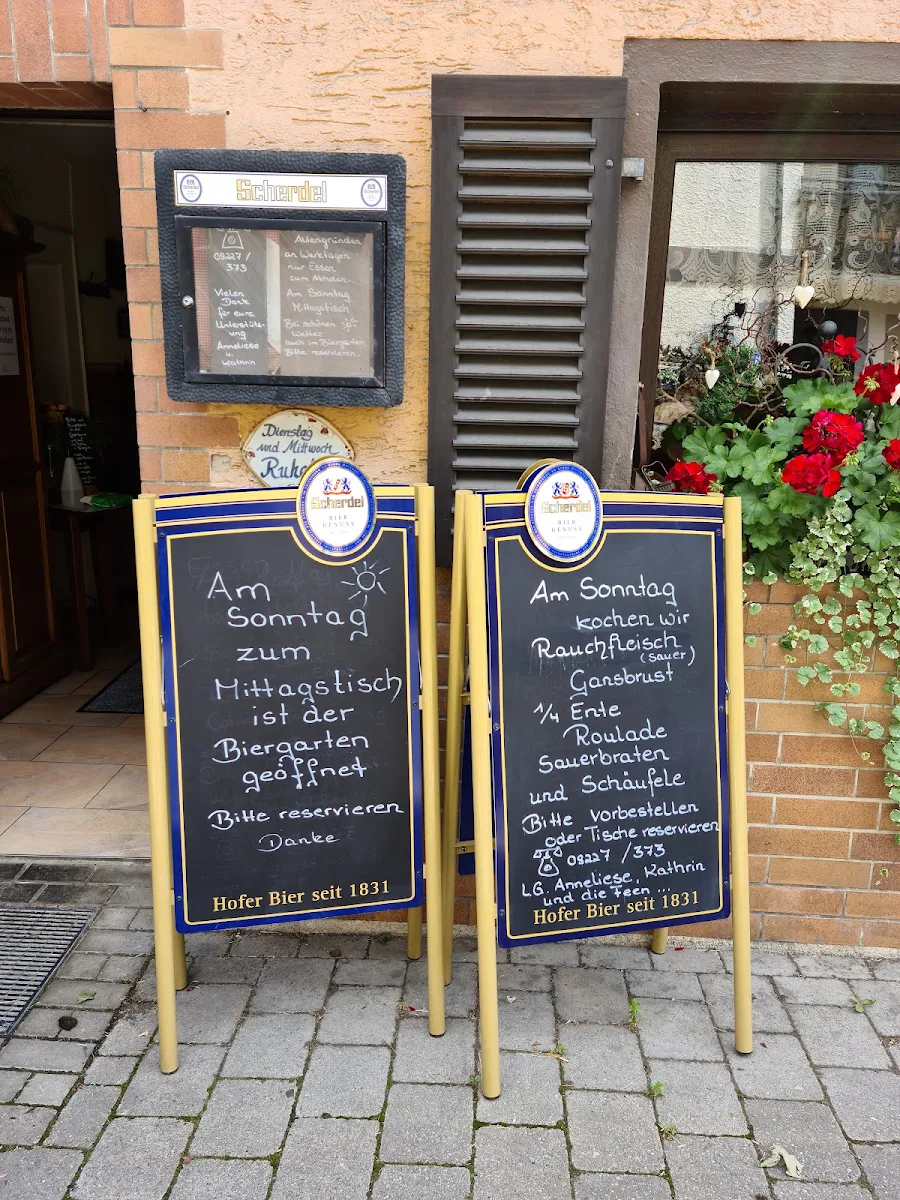 Scherdel
09227 /
373
Vielen
Dank
für eure
Unterstütz-
ung
Anneliese
u.
Kathrin
Altersgründen
an Werktagen
nur Essen
zum Abholen.
Am Sonntag
Mittagstisch
Bei schönen
Wetter
auch im Biergarten
Bitte reservieren.
Dienstag
und Mittwoch
Scherdel
BIER
GENUSS
Am
Sonntag
zum
Mittagstisch
ist der
Biergarten
geöffnet
Bitte reservieren
Danke
Hofer Bier seit 1831
Scherdel
BIER
GENUSS
Am Sonntag
kochen wir
Rauchfleisch
(sauer)
Gansbrust
1/4 Ente
Roulade
Sauerbraten
und Schäufele
Bitte vorbestellen
oder Tische reservieren
09227 /373
LG. Anneliese, Kathrin
und die Feen ...
Hofer Bier seit 1831